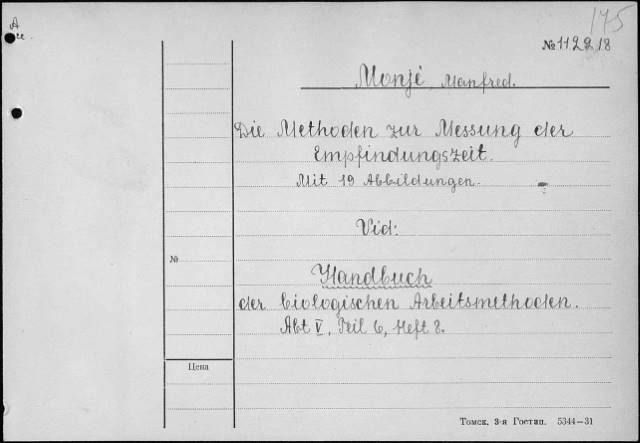 A
175
№ 112218
Monjé Manfred.
Die Methoden zur Messung der
Empfindungszeit.
Mit 19 Abbildungen.
Vid:
№
Handbuch
der biologischen Arbeitsmethoden.
Abt V, Teil 6, Heft 8.
Цена
Томск, 3-я Гостип. 5344—31